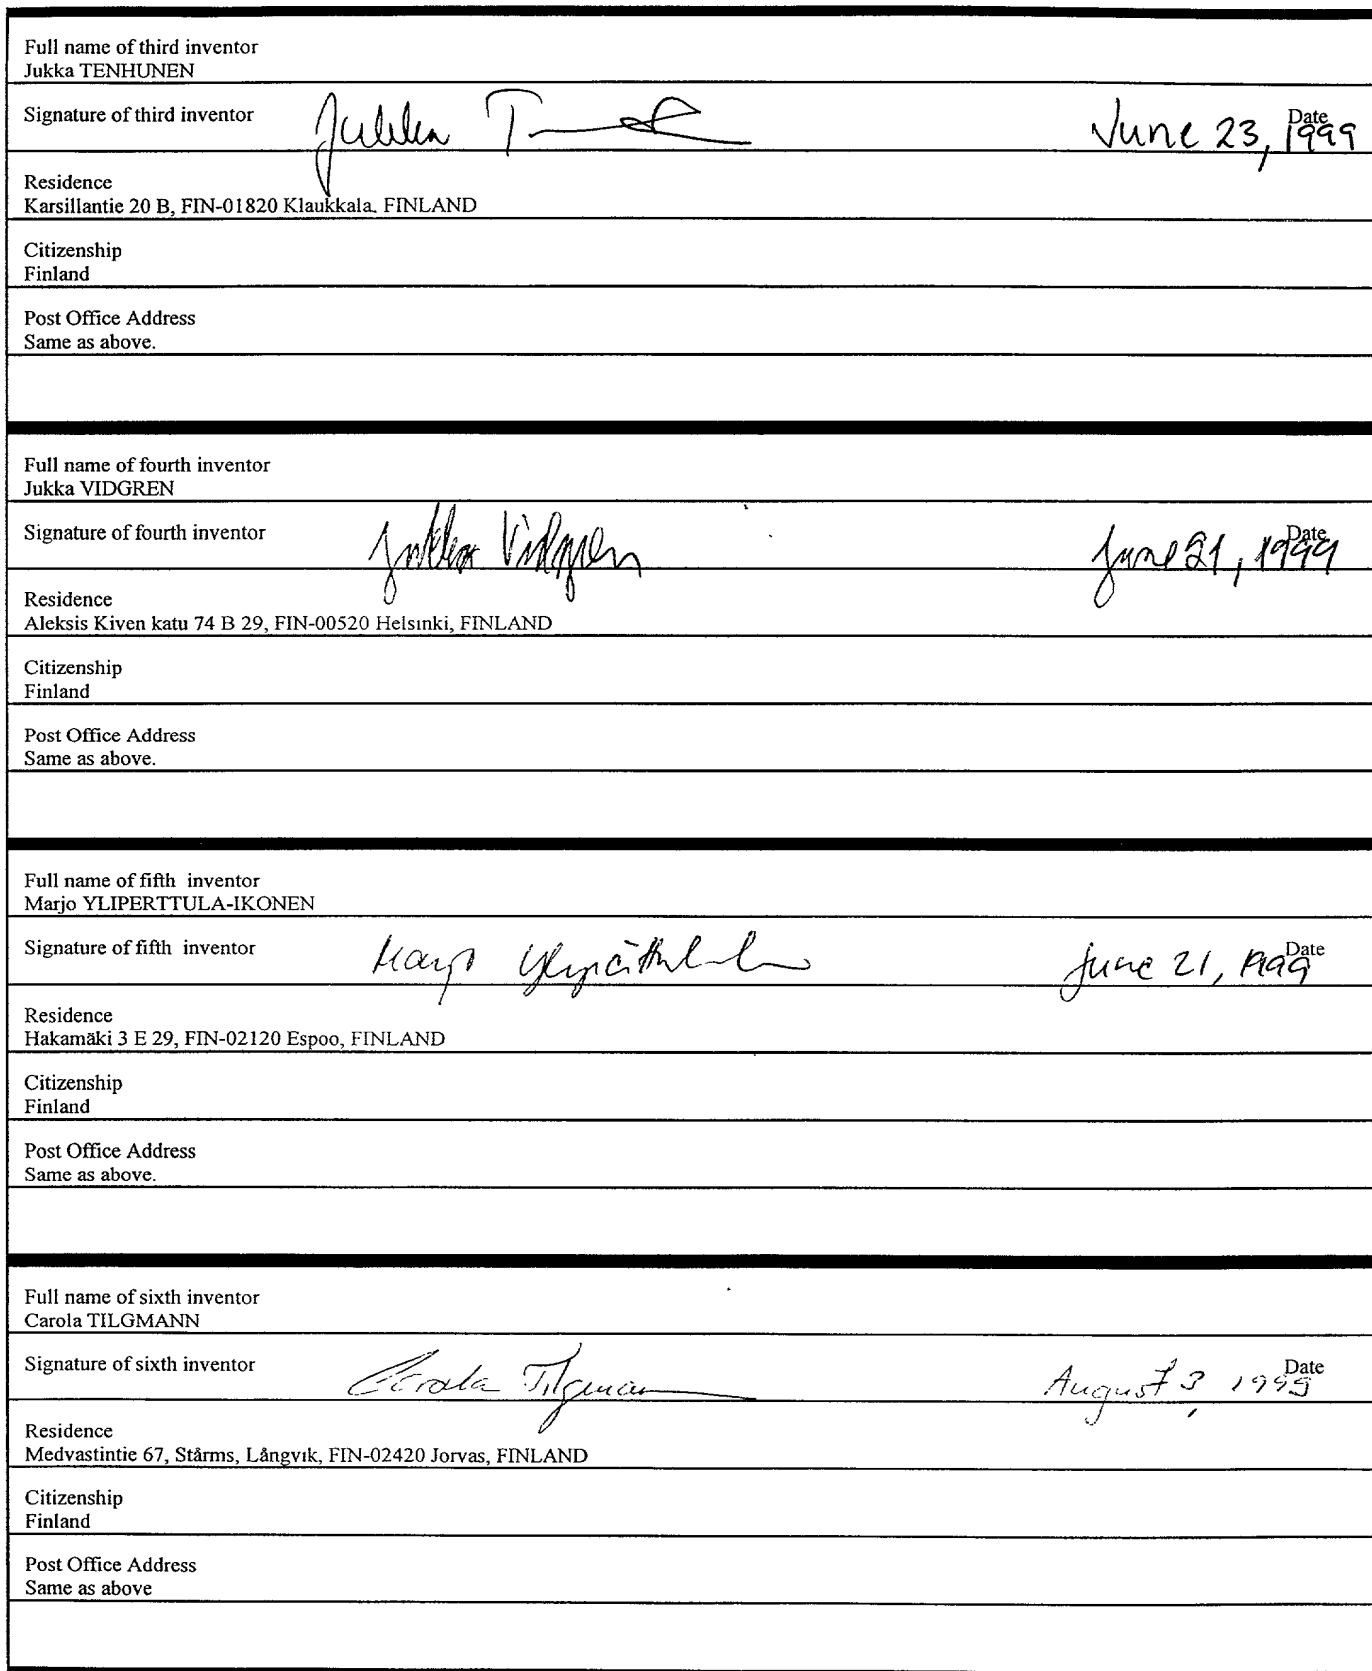 Full name of third inventor
Jukka TENHUNEN
Signature of third inventor Jukka T Date June 23, 1999
Residence
Karsillantie 20 B, FIN-01820 Klaukkala. FINLAND
Citizenship
Finland
Post Office Address
Same as above.
Full name of fourth inventor
Jukka VIDGREN
Signature of fourth inventor Jukka Vidgren Date June 21, 1999
Residence
Aleksis Kiven katu 74 B 29, FIN-00520 Helsinki, FINLAND
Citizenship
Finland
Post Office Address
Same as above.
Full name of fifth inventor
Marjo YLIPERTTULA-IKONEN
Signature of fifth inventor Marjo Date June 21, 1999
Residence
Hakamäki 3 E 29, FIN-02120 Espoo, FINLAND
Citizenship
Finland
Post Office Address
Same as above.
Full name of sixth inventor
Carola TILGMANN
Signature of sixth inventor Carola Tilgmann Date August 3, 1999
Residence
Medvastintie 67, Stårms, Långvik, FIN-02420 Jorvas, FINLAND
Citizenship
Finland
Post Office Address
Same as above